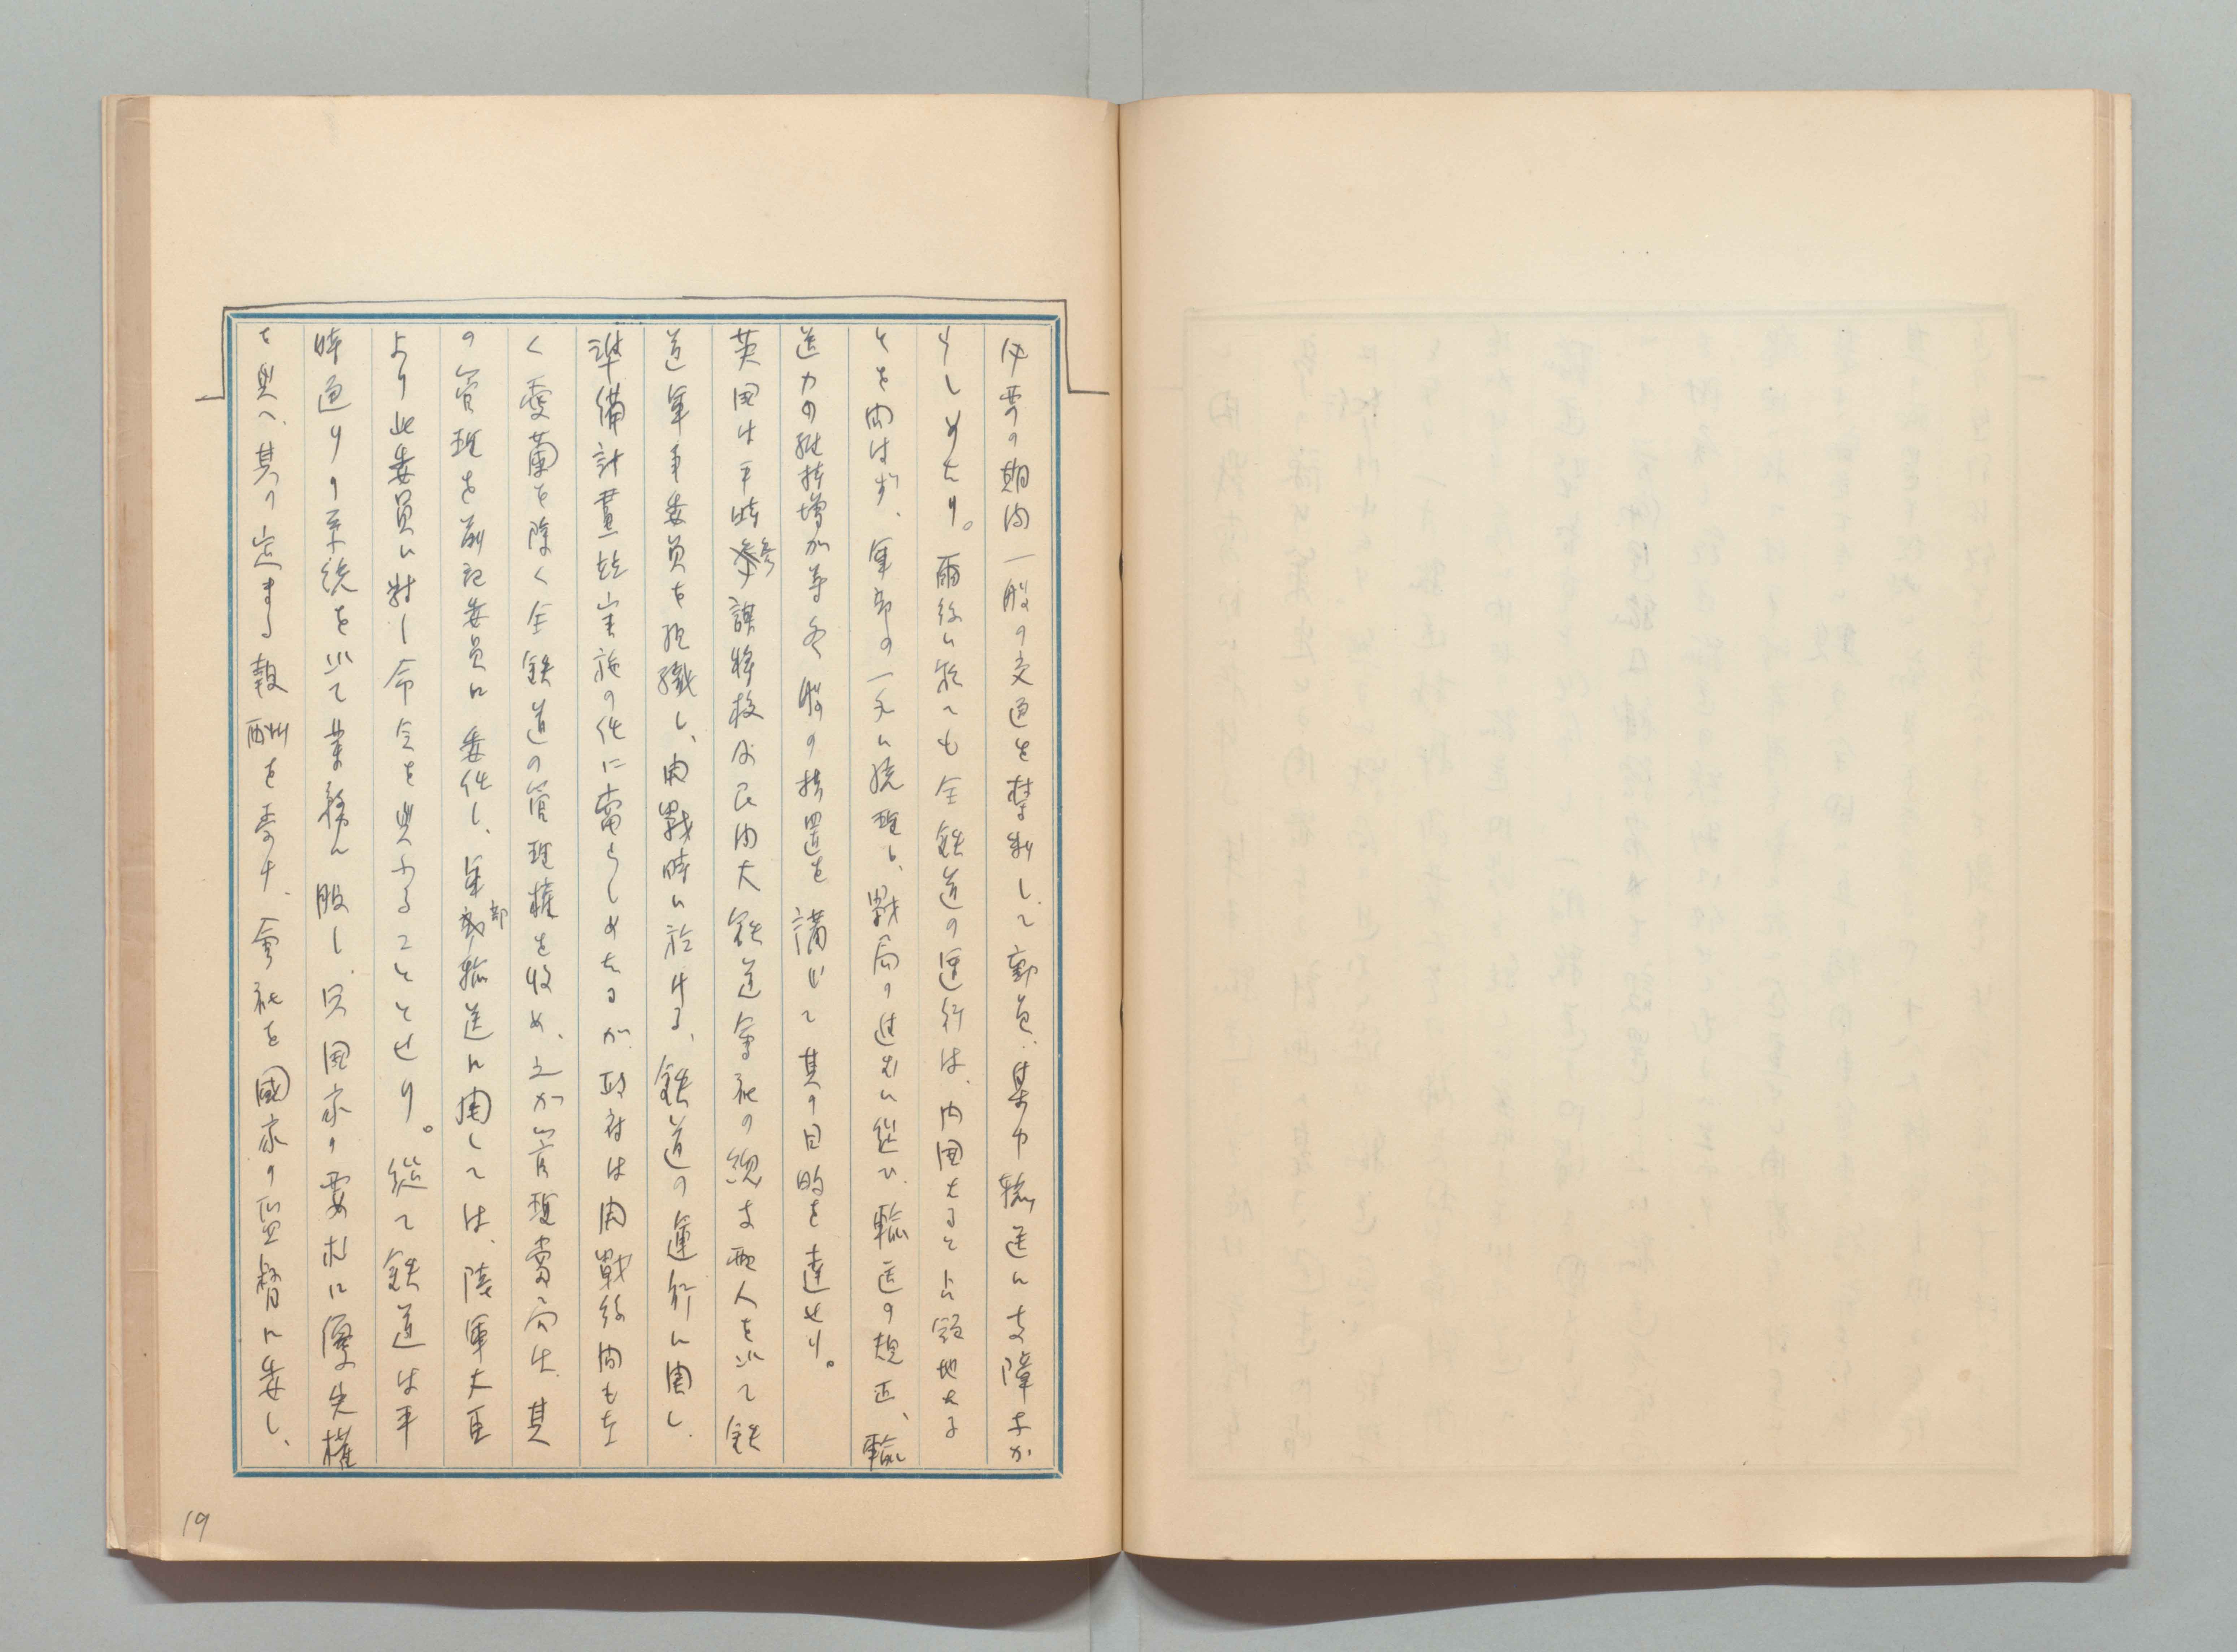 必要の期内一般の交通を禁制して動員、集中輸送に支障なか
らしめたり。爾後に於ても全鉄道の運行は、内国たると占領地たる
とを問はず、軍部の一元に統理し、戦局の進むに従ひ、輸送の規正、輸
送力の維持増加等各般の措置を講じて其の目的を達せり。
英国は平時参謀将校及民間大鉄道会社の総支配人を以て鉄
道軍事委員を組織し、開戦時に於ける、鉄道の運行に関し、
準備計畫竝実施の任に當らしめたるが政府は開戦後間もな
く愛蘭を除く全鉄道の管理権を収め、之が管理當局は、其
の管理を前記委員に委任し、軍部輸送に関しては、陸軍大臣
より此委員に対し命令を與ふることとせり。従て鉄道は平
時通りの系統を以て業務に服し、只国家の要求に優先権
を與へ、其の定まる報酬を受け、會社を國家の監督に委し、
19